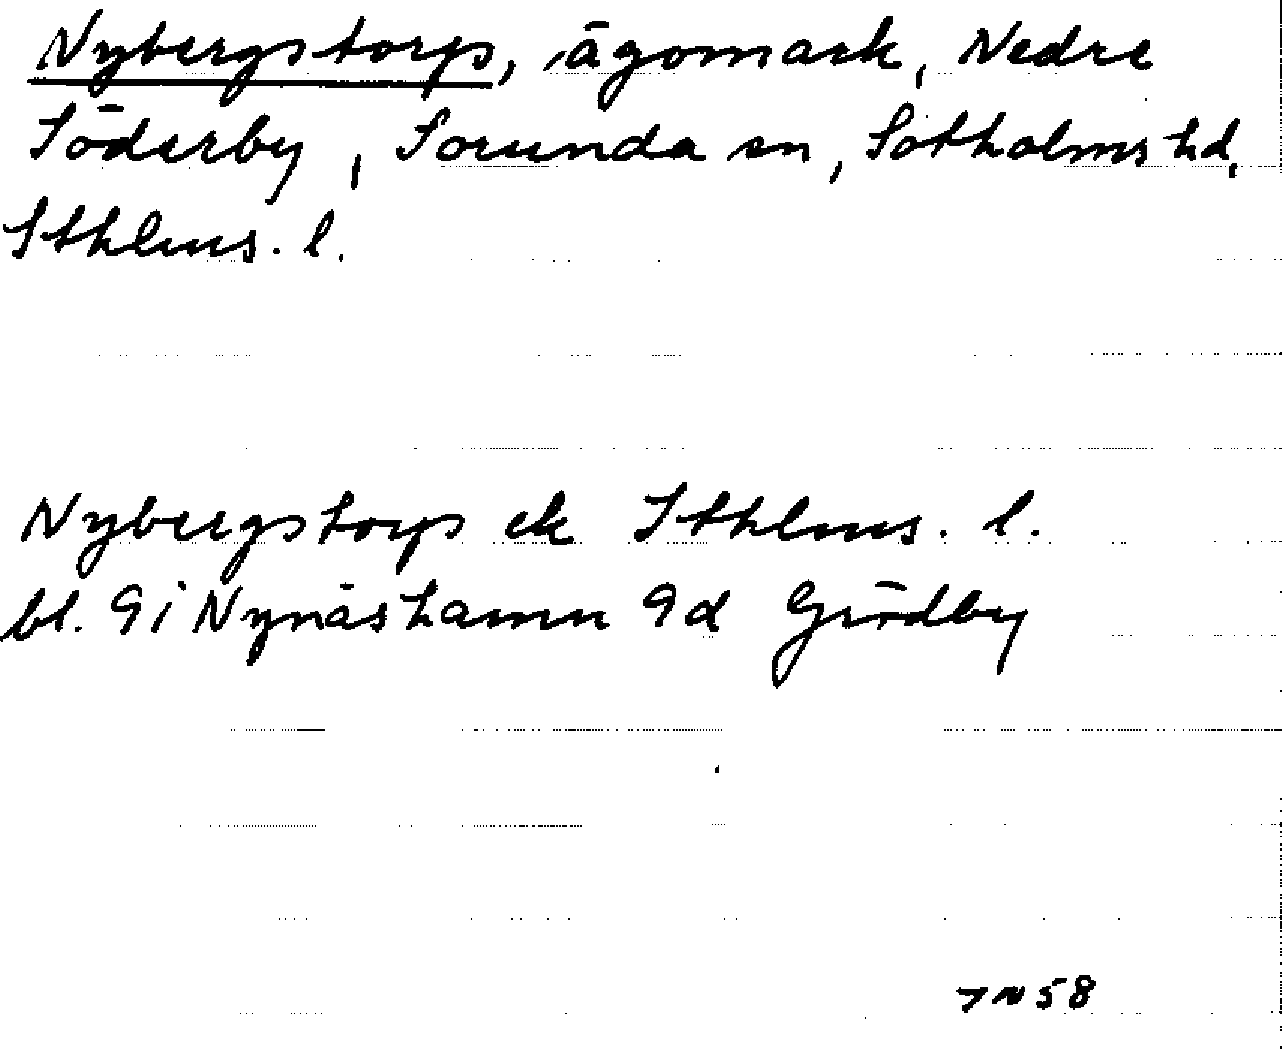 Nybergstorp, ägomark, Nedre
Söderby, Sorunda sn, Sotholms hd,
Sthlms. l.
Nybergstorp ek Sthlms. l.
bl. 9i Nynäshamn 9d Grödby
58